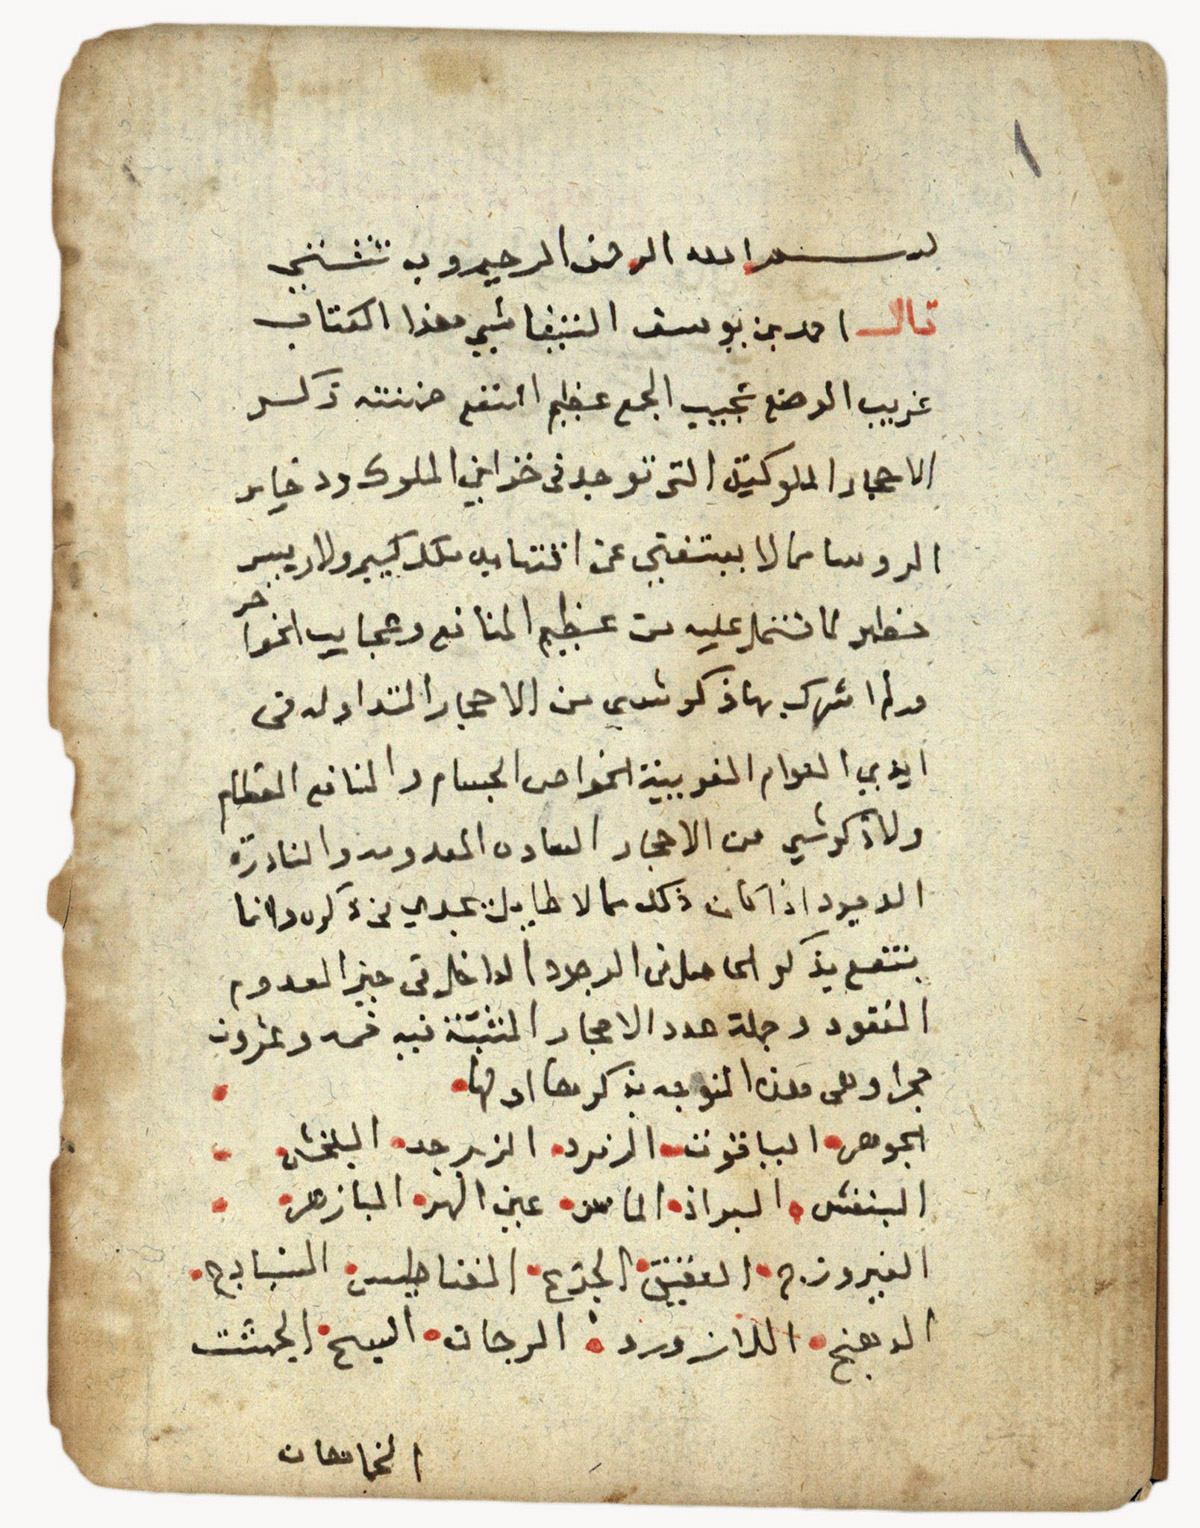 ١
بسم الله الرحمن الرحيم وبه ثقتي
قال احمد بن يوسف التيفاشي هذا الكتاب
غريب الوضع عجيب الجمع عظيم النفع ضمنته ذكر
الاحجار الملوكية التي توجد في خزاين الملوك وذخاير
الروسا مما لا يستغني عن اقتنايه ملك كبير ولا رييس
خطير لما تشتمل عليه من عظيم المنافع وعجايب الخواص
ولم اشرك بها ذكر شي من الاحجار المتداوله في
ايدي العوام الغريبة الخواص الجسام والمنافع العظام
ولا ذكر شي من الاحجار المعدومه والنادرة
الوجود اذا كان ذكر مما لا طايل يجدي في ذكره وانما
ينتفع بذكر الحاصل في الوجود الداخل في حيز المعدوم
المفقود وجملة عدد الاحجار المثبتة فيه خمسه وعشرون
حجرا وهي هذه المنوجه بذكرها اولها
الجوهر الياقوت الزمرد الزبرجد البلخش
البنفش البراذ الماس عين الهر البازهر
الفيروزج العقيق الجزع المغناطيس السنباذج
الدهنج اللازورد المرجان اليسم الجمشت
الخماهان